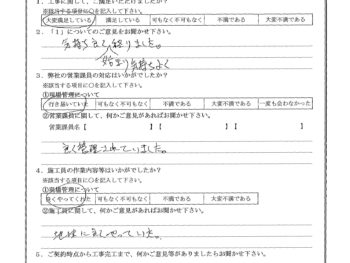 1. 工事に関して、ご満足いただけましたか?
※該当する項目に○を記入して下さい。
大変満足している 満足している 可もなく不可もなく 不満である 大変不満である
2. 「1」についてのご意見をお聞かせ下さい。
気持ち良く終りました。
始まり気持ちよく
3. 弊社の営業課員の対応はいかがでしたか?
※該当する項目に○を記入して下さい。
①現場管理について
行き届いていた 可もなく不可もなく 不満である 大変不満である 一度も会わなかった
②営業課員に関して、何かご意見があればお聞かせ下さい。
営業課員名【 】【 】【 】
良く管理されていました。
4. 施工員の作業内容等はいかがでしたか?
※該当する項目に○を記入して下さい。
①現場管理について
良くやってくれた 可もなく不可もなく 不満である 大変不満である
②施工員に関して、何かご意見があればお聞かせ下さい。
に良くやっていた。
5. ご契約時点から工事完工まで、何かご意見等がありましたらお聞かせ下さい。